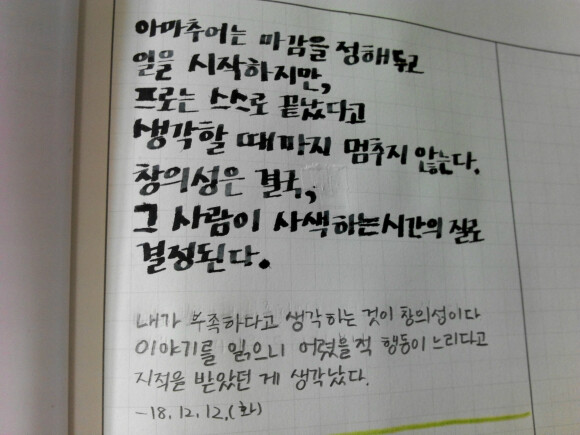 아마추어는 마감을 정해두고
일을 시작하지만,
프로는 스스로 끝났다고
생각할 때까지 멈추지 않는다.
창의성은 결국,
그 사람이 사색하는시간의 질로
결정된다.
내가 부족하다고 생각하는 것이 창의성이다
이야기를 읽으니 어렸을적 행동이 느리다고
지적을 받았던 게 생각났다.
-18.12.12.(화)